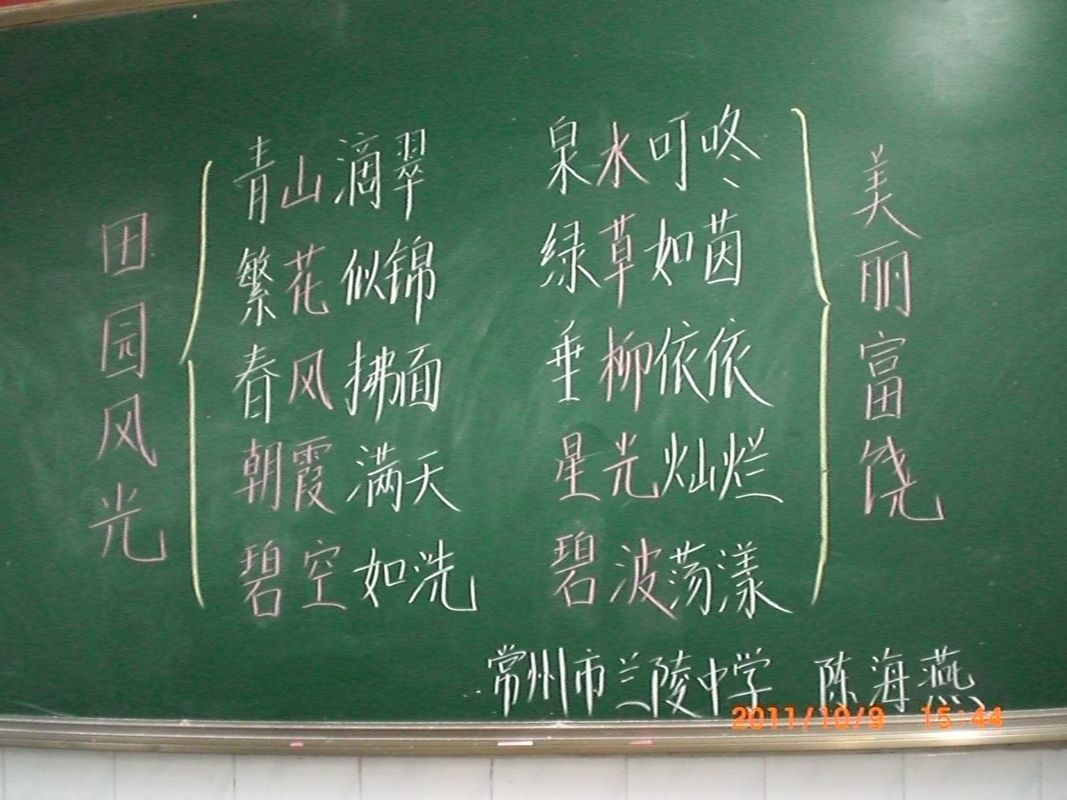 田园风光
青山滴翠 泉水叮咚
繁花似锦 绿草如茵
春风拂面 垂柳依依
朝霞满天 星光灿烂
碧空如洗 碧波荡漾
美丽富饶
常州市兰陵中学 陈海燕
2011/10/9 15:44